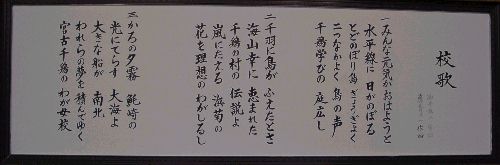 校歌
一 みんな元気かおはようと
水平線に 日がのぼる
とどのぼり島 ぎょうぎよく
二つなかよく 鳥の声
千鶏学びの 庭広し
二 千羽に鳥が ふえたとさ
海山幸に 恵まれた
千鶏の村の 伝説よ
嵐にたえる 浜菊の
花を理想の わがしるし
三 かろの夕霧 鮑崎の
光にてらす 大海よ
大きな船が 南北
われらの夢を 積んでゆく
宮古千鶏の わが母校